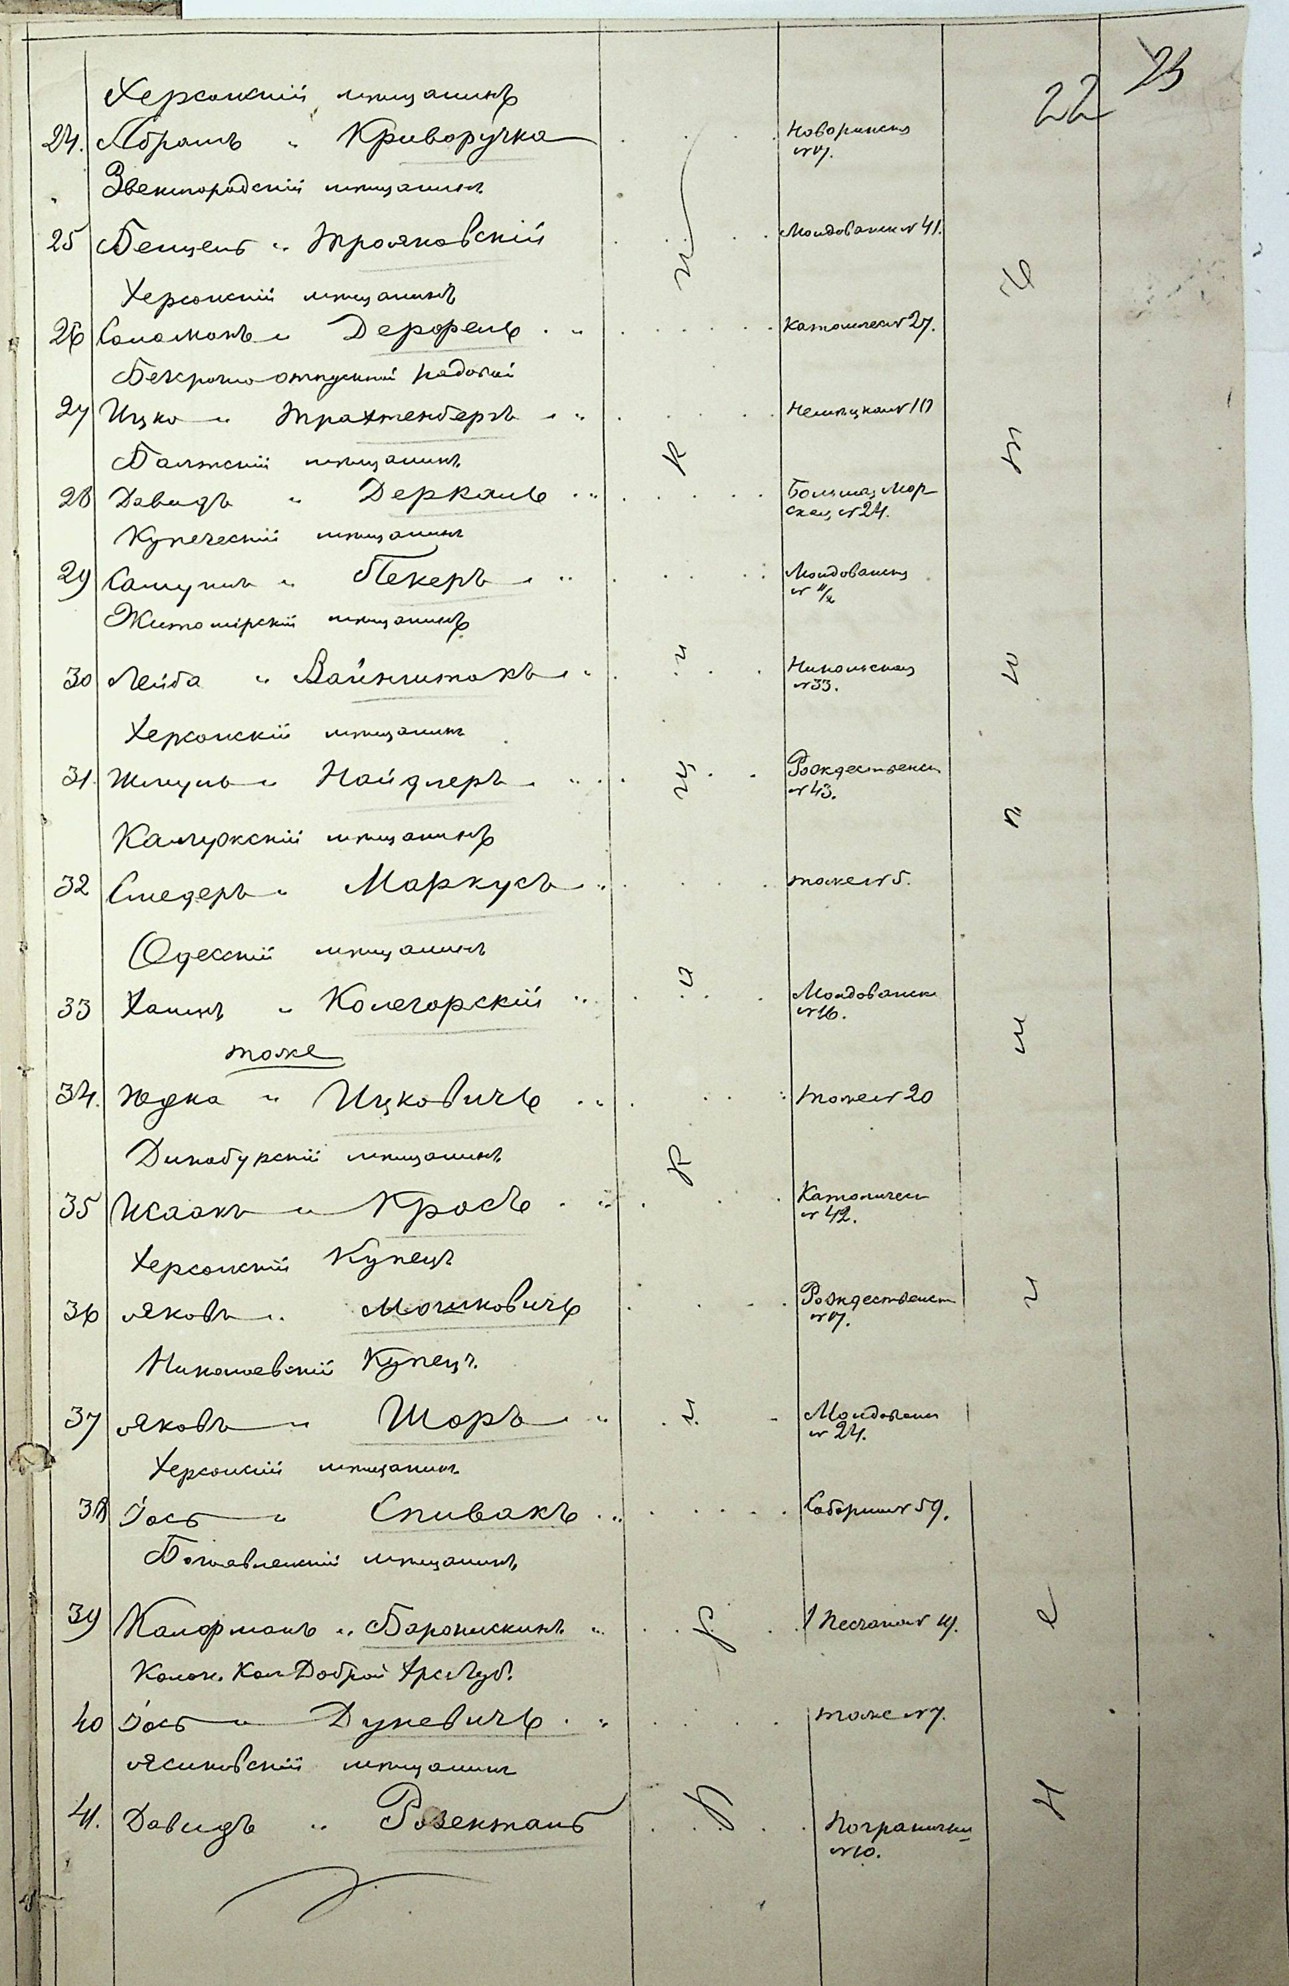 22 23
Херсонскій мѣщанинъ
24. Абрамъ " Криворучка
Новорынская
№ 17.
Звенигородскій мѣщанинъ
25 Бенцень " Трояновскій
Молдованск № 41.
Херсонскій мѣщанинъ
26 Соломонъ "
Католическ № 27.
Безсрочно отпускной рядовой
27 Ицко " Трахтенбергъ "
Немецкая № 10
Балтскій мѣщанинъ
28 Давидъ " Деркачь "
Большая Мор-
ская № 24.
мѣщанинъ
29 Самуилъ " Пекеръ "
Молдованская
№ 11/2
Житомірскій мѣщанинъ
30 Лейба " Вайнштокъ "
Никольская
№ 33.
Херсонскій мѣщанинъ
31. Шмуль " Найдлеръ "
Рождественск
№ 43.
Калужскій мѣщанинъ
32 " Маркусъ "
тоже № 5.
Одесскій мѣщанинъ
33 Хаимъ " Колегорскій "
Молдованск
№ 16.
тоже
34. Юдка " Ицковичъ "
тоже № 20
Динабурскій мѣщанинъ
35 Исаакъ " Кросъ "
Католическ
№ 42.
Херсонскій Купецъ
36 Яковъ " Мошковичъ
Рождественск
№ 17.
Николаевскій Купецъ
37 Яковъ " Шоръ "
Молдованск
№ 24.
Херсонскій мѣщанинъ
38 Іось " Спивакъ "
Соборная № 59.
Богоявленскій мѣщанинъ
39 Калфманъ " Баронискинъ "
1 Песчаная № 19.
Колон. Кол Доброй Хрс Губ.
40 Іось " Дуневичъ "
тоже № 7.
мѣщанинъ
41. Давидъ " Розенталь
Погранична
№ 10.